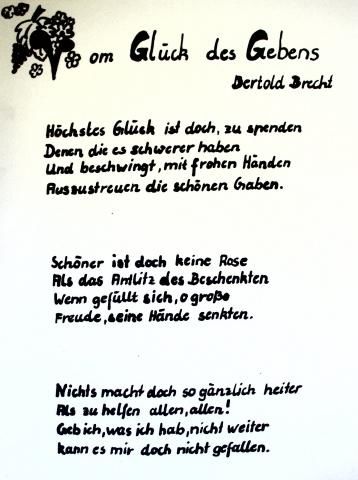 Vom Glück des Gebens
Bertold Brecht
Höchstes Glück ist doch, zu spenden
Denen die es schwerer haben
Und beschwingt, mit frohen Händen
Auszustreuen die schönen Gaben.
Schöner ist doch keine Rose
Als das Antlitz des Beschenkten
Wenn gefüllt sich, o große
Freude, seine Hände senkten.
Nichts macht doch so gänzlich heiter
Als zu helfen allen, allen!
Geb ich, was ich hab, nicht weiter
kann es mir doch nicht gefallen.